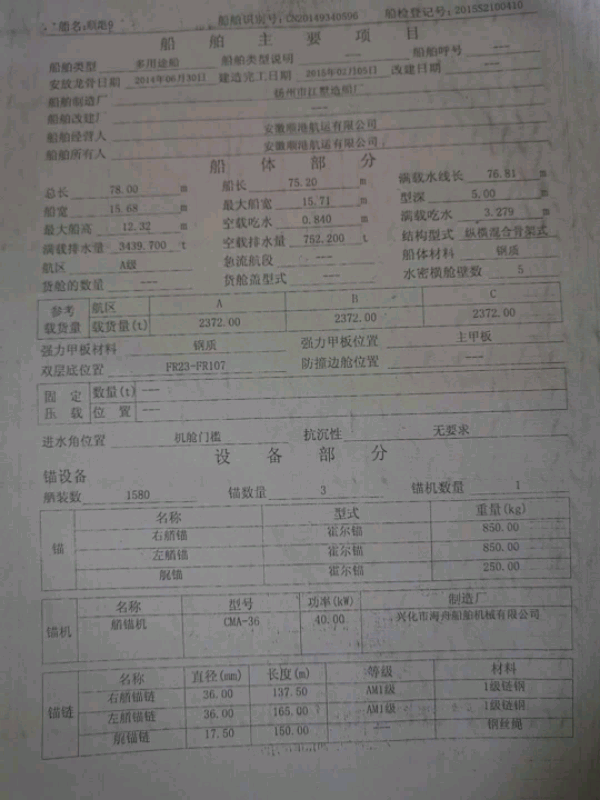 船名: 船舶识别号: CN20149340596 船检登记号: 2015S2100410
船 舶 主 要 项 目
船舶类型 多用途船 船舶类型说明 --- 船舶呼号 ---
安放龙骨日期 2014年06月30日 建造完工日期 2015年02月05日 改建日期 ---
船舶制造厂 扬州市江塑造船厂
船舶改建厂 ---
船舶经营人 安徽顺港航运有限公司
船舶所有人 安徽顺港航运有限公司
船 体 部 分
总长 78.00 m 船长 75.20 m 满载水线长 76.81 m
船宽 15.68 m 最大船宽 15.71 m 型深 5.00 m
最大船高 12.32 m 空载吃水 0.840 m 满载吃水 3.279 m
满载排水量 3439.700 t 空载排水量 752.200 t 结构型式 纵横混合骨架式
航区 A级 急流航段 --- 船体材料 钢质
货舱的数量 --- 货舱盖型式 --- 水密横舱壁数 5
参考 航区 A B C
载货量 载货量(t) 2372.00 2372.00 2372.00
强力甲板材料 钢质 强力甲板位置 主甲板
双层底位置 FR23-FR107 防撞边舱位置 ---
固 定 数量(t) ---
压 载 位 置 ---
进水角位置 机舱门槛 抗沉性 无要求
设 备 部 分
锚设备
舾装数 1580 锚数量 3 锚机数量 1
锚 名称 型式 重量(kg)
右艏锚 霍尔锚 850.00
左艏锚 霍尔锚 850.00
艉锚 霍尔锚 250.00
锚机 名称 型号 功率(kW) 制造厂
艏锚机 CMA-36 40.00 兴化市海舟船舶机械有限公司
锚链 名称 直径(mm) 长度(m) 等级 材料
右艏锚链 36.00 137.50 AM1级 1级链钢
左艏锚链 36.00 165.00 AM1级 1级链钢
艉锚链 17.50 150.00 --- 钢丝绳